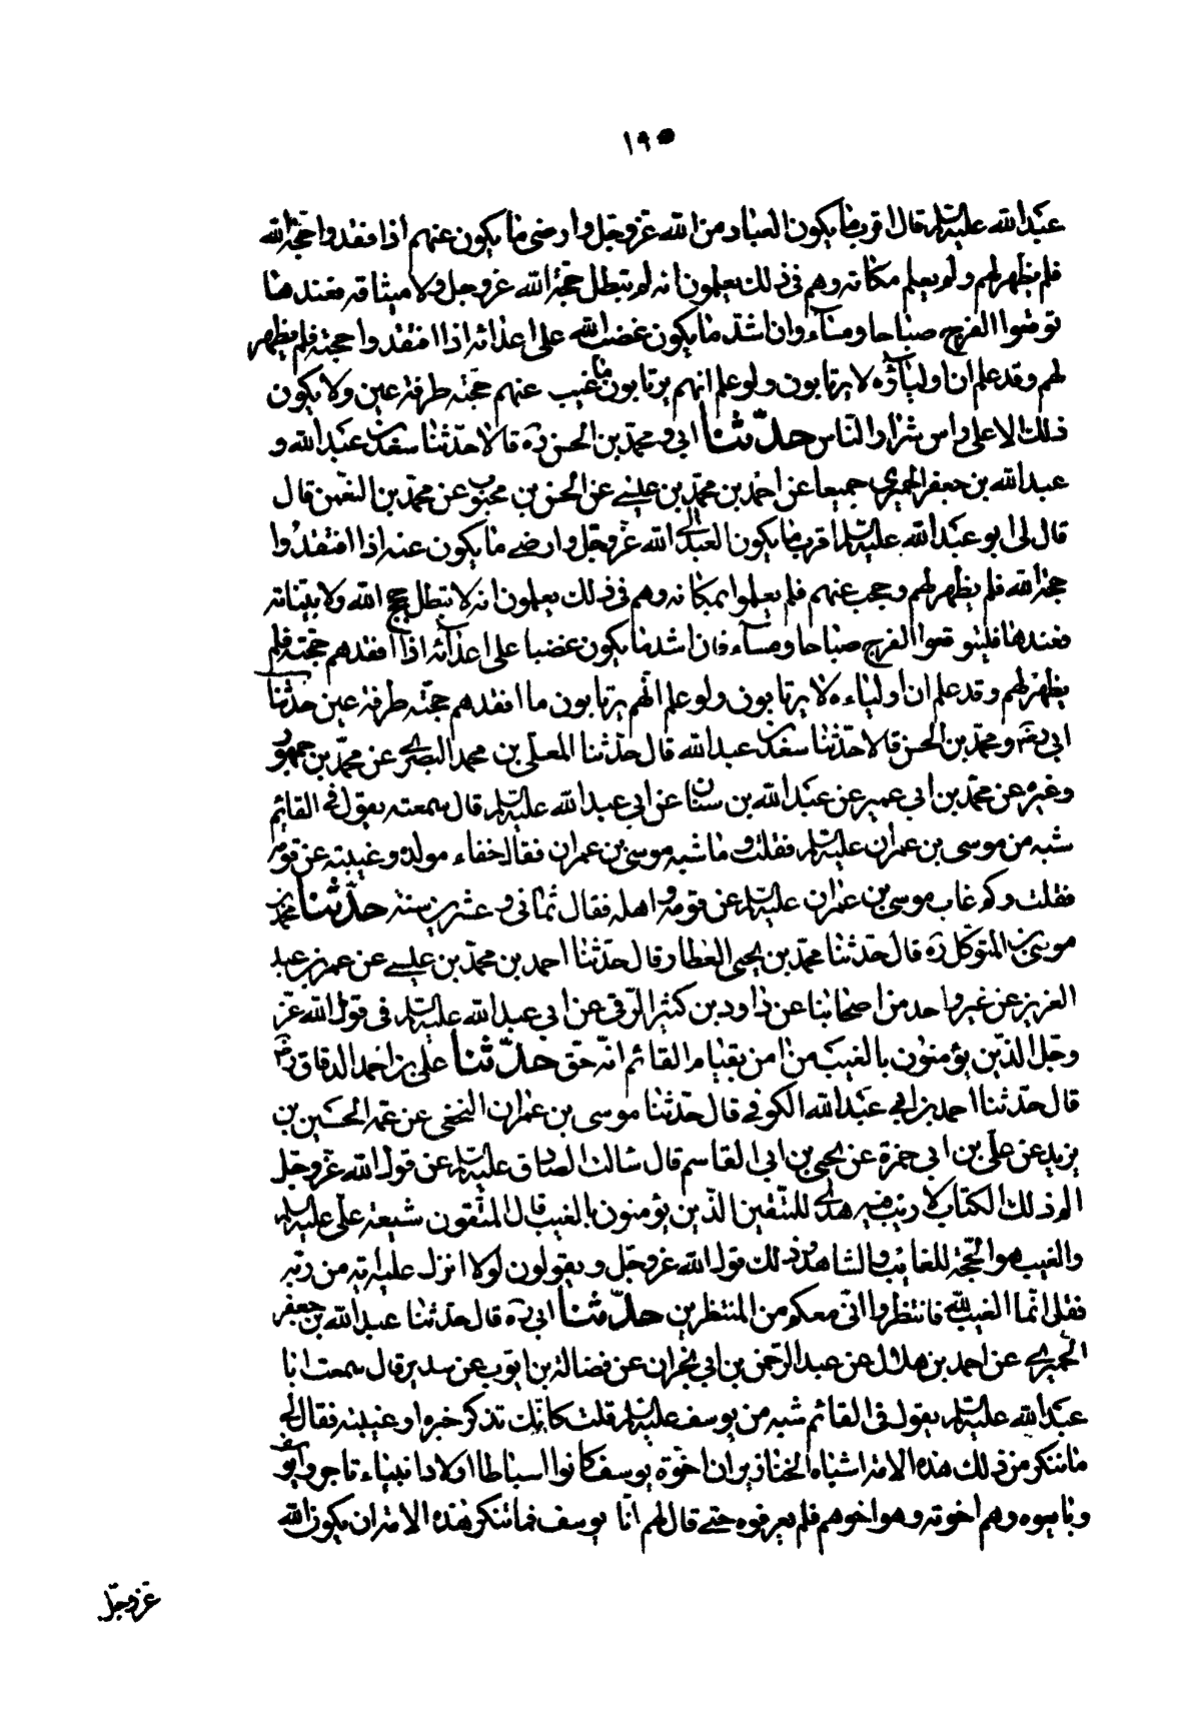 ١٩٥
عبد الله عليه السلم قال اقرب ما يكون العباد من الله عز وجل وارضى ما يكون عنهم اذا فقدوا حجة الله
فلم يظهر لهم ولم يعلم مكانه وهم فى ذلك يعلمون انه لم تبطل حجة الله عز وجل ولا ميثاقه فعندها
توقعوا الفرج صباحا ومسآء وان اشد ما يكون غضب الله على اعدائه اذا افتقدوا حجته فلم يظهر
لهم وقد علم ان اوليآؤه لا يرتابون ولو علم انهم يرتابون ما غيب عنهم حجته طرفة عين ولا يكون
ذلك الا على راس شرار الناس حدثنا ابى ومحمد بن الحسن ره قالا حدثنا سعد بن عبد الله و
عبد الله بن جعفر الحميرى جميعا عن احمد بن محمد بن عيسى عن الحسن بن محبوب عن محمد بن النعمن قال
قال لى ابو عبد الله عليه السلم اقرب ما يكون العباد الى الله عز وجل وارضى ما يكون عنه اذا افتقدوا
حجة الله فلم يظهر لهم وحجب عنهم فلم يعلموا بمكانه وهم فى ذلك يعلمون انه لا تبطل حجج الله ولا بيناته
فعندها فليتوقعوا الفرج صباحا ومسآء فان اشد ما يكون غضبا على اعدآئه اذا افقدهم حجته فلم
يظهر لهم وقد علم ان اولياءه لا يرتابون ولو علم انهم يرتابون ما افقدهم حجته طرفة عين حدثنا
ابى ره ومحمد بن الحسن قالا حدثنا سعد بن عبد الله قال حدثنا المعلى بن محمد البصرى عن محمد بن جمهور
وغيره عن محمد بن ابى عمير عن عبد الله بن سنان عن ابى عبد الله عليه السلم قال سمعته يقول فى القائم
شبه من موسى بن عمران عليه السلم فقلت وما شبه موسى بن عمران فقال خفاء مولده وغيبته عن قومه
فقلت وكم غاب موسى بن عمران عليه السلم عن قومه واهله فقال ثمانى وعشرين سنة حدثنا محمد بن
موسى بن المتوكل ره قال حدثنا محمد بن يحيى العطار قال حدثنا احمد بن محمد بن عيسى عن عمر بن عبد
العزيز عن غير واحد من اصحابنا عن داود بن كثير الرقى عن ابى عبد الله عليه السلم فى قول الله عز
وجل الذين يؤمنون بالغيب من امن بقيام القائم انه حق حدثنا على بن احمد الدقاق
قال حدثنا احمد بن ابى عبد الله الكوفى قال حدثنا موسى بن عمران النخعى عن عمه الحسين بن
يزيد عن على بن ابى حمزة عن يحيى بن ابى القاسم قال سالت الصادق عليه السلم عن قول الله عز وجل
الم ذلك الكتاب لا ريب فيه هدى للمتقين الذين يؤمنون بالغيب قال المتقون شيعة على عليه السلم
والغيب هو الحجة الغائب والشاهد ذلك قول الله عز وجل ويقولون لولا انزل عليه اية من ربه
فقل انما الغيب لله فانتظروا انى معكم من المنتظرين حدثنا ابى ره قال حدثنا عبد الله بن جعفر
الحميرى عن احمد بن هلال عن عبد الرحمن بن ابى نجران عن فضالة بن ايوب عن سدير قال سمعت ابا
عبد الله عليه السلم يقول فى القائم شبه من يوسف عليه السلم قلت كانك تذكر خبره او غيبته فقال لى
ما تنكر من ذلك هذه الامة اشباه الخنازير ان اخوة يوسف كانوا اسباطا اولاد انبياء تاجروا يوسف
وبايعوه وهم اخوته وهو اخوهم فلم يعرفوه حتى قال لهم انا يوسف فما تنكر هذه الامة ان يكون الله
عز وجل